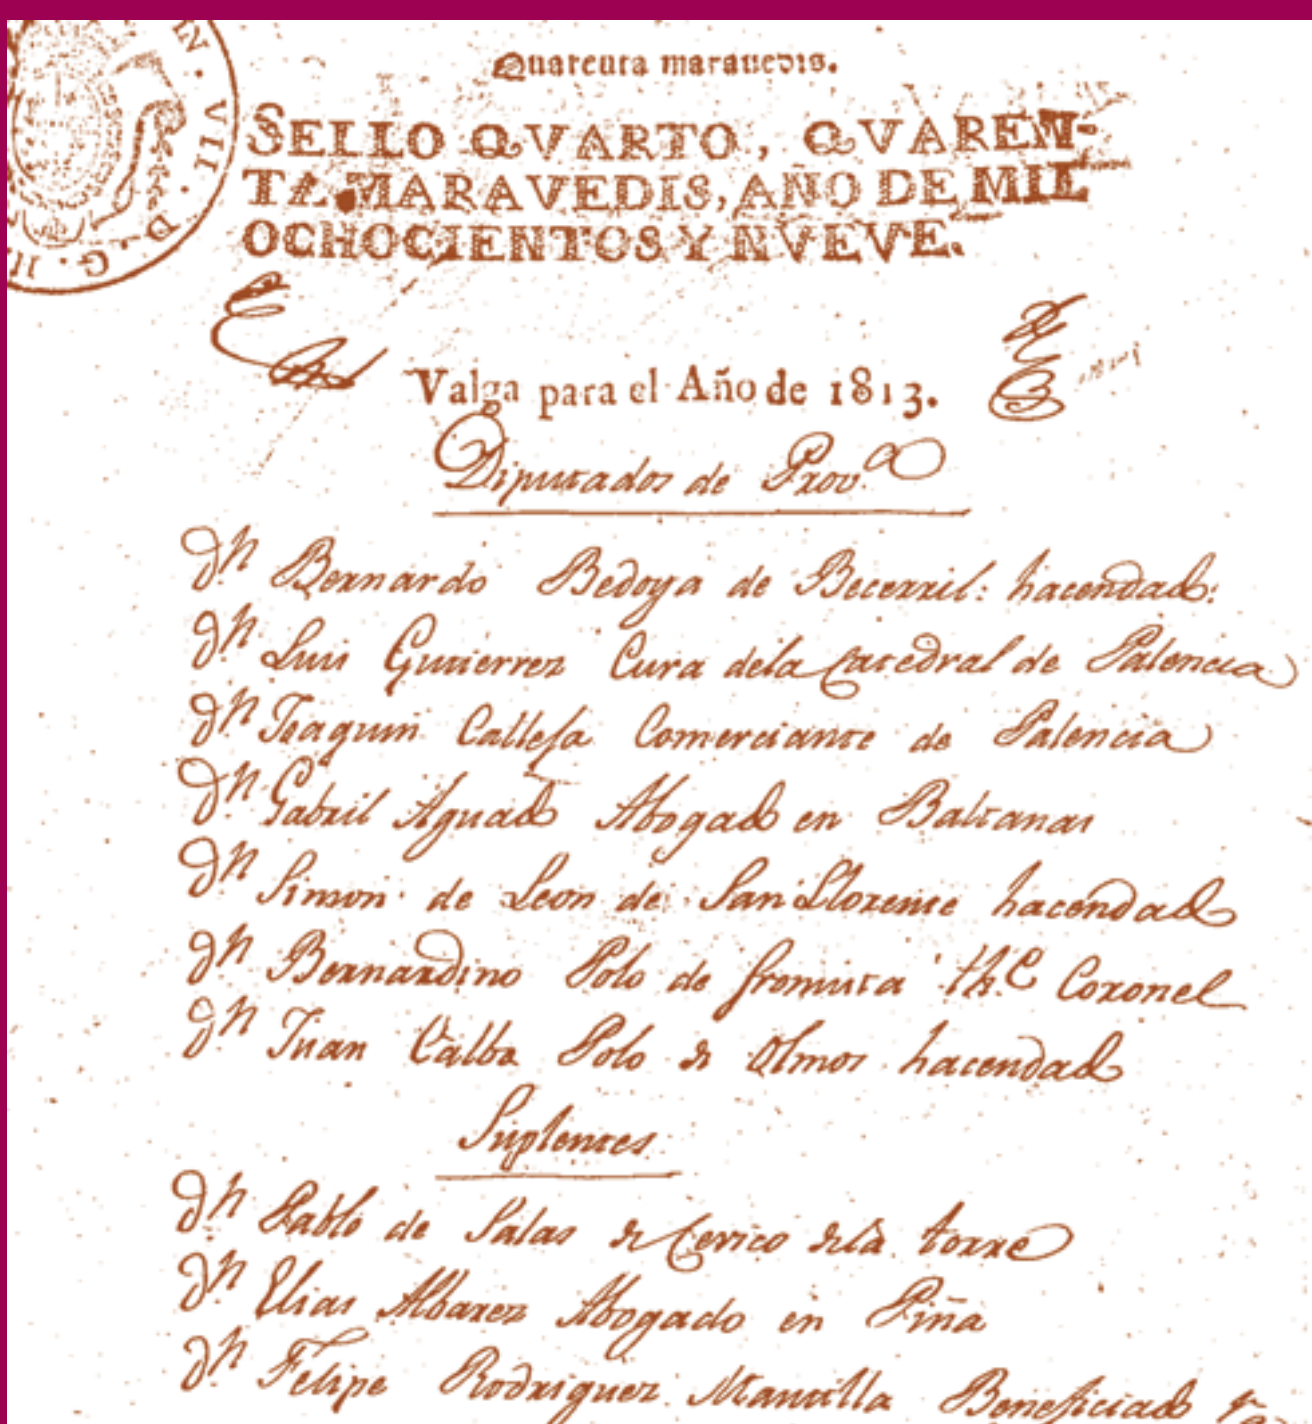 N. VII. D. G. H
Quarenta maravedis.
SELLO QVARTO, QVAREN-
TA MARAVEDIS, AÑO DE MIL
OCHOCIENTOS Y NVEVE.
Valga para el Año de 1813.
Diputados de Prov.ª
Dn. Bernardo Bedoya de Becerril: hacendado:
Dn. Luis Gutierrez Cura dela Catedral de Palencia
Dn. Joaquin Calleja Comerciante de Palencia
Dn. Gabril Aguado Abogado en Baltanas
Dn. Simon de Leon de San Llorente hacendado
Dn. Bernardino Polo de fromista the. Coronel
Dn. Juan Calbo Polo de Olmos hacendado
Suplentes
Dn. Pablo de Salas de Cevico dela torre
Dn. Elias Albarez Abogado en Piña
Dn. Felipe Rodriguez Mantilla Beneficiado